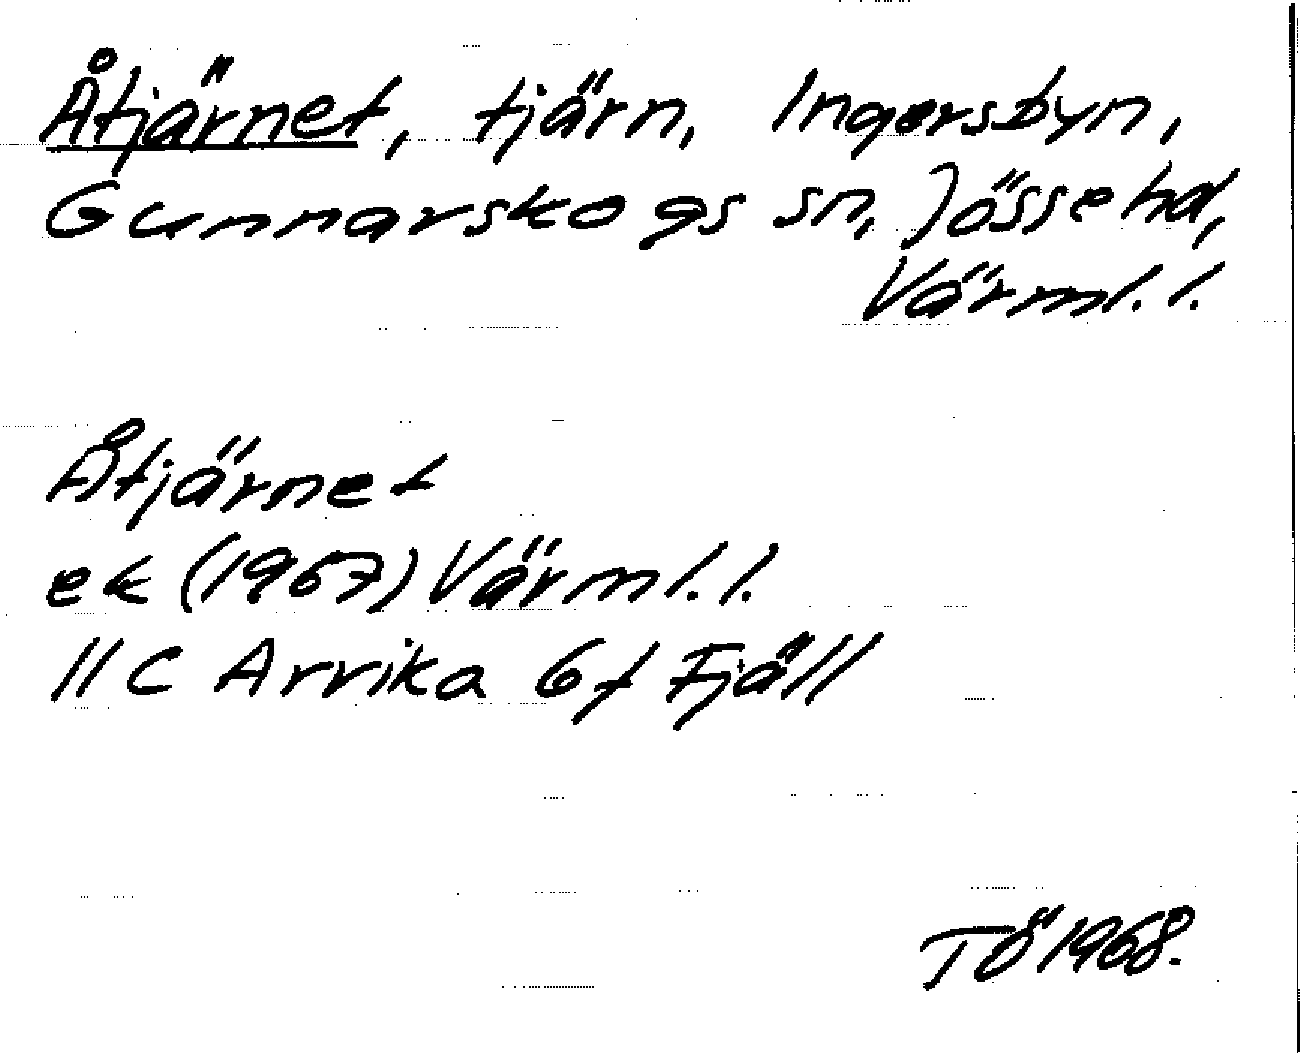 Åtjärnet, tjärn, Ingersbyn,
Gunnarskogs sn, Jösse hd,
Värml. l.
Åtjärnet
ek (1967) Värml. l.
11 C Arvika 6f Fjäll
TÖ 1968.